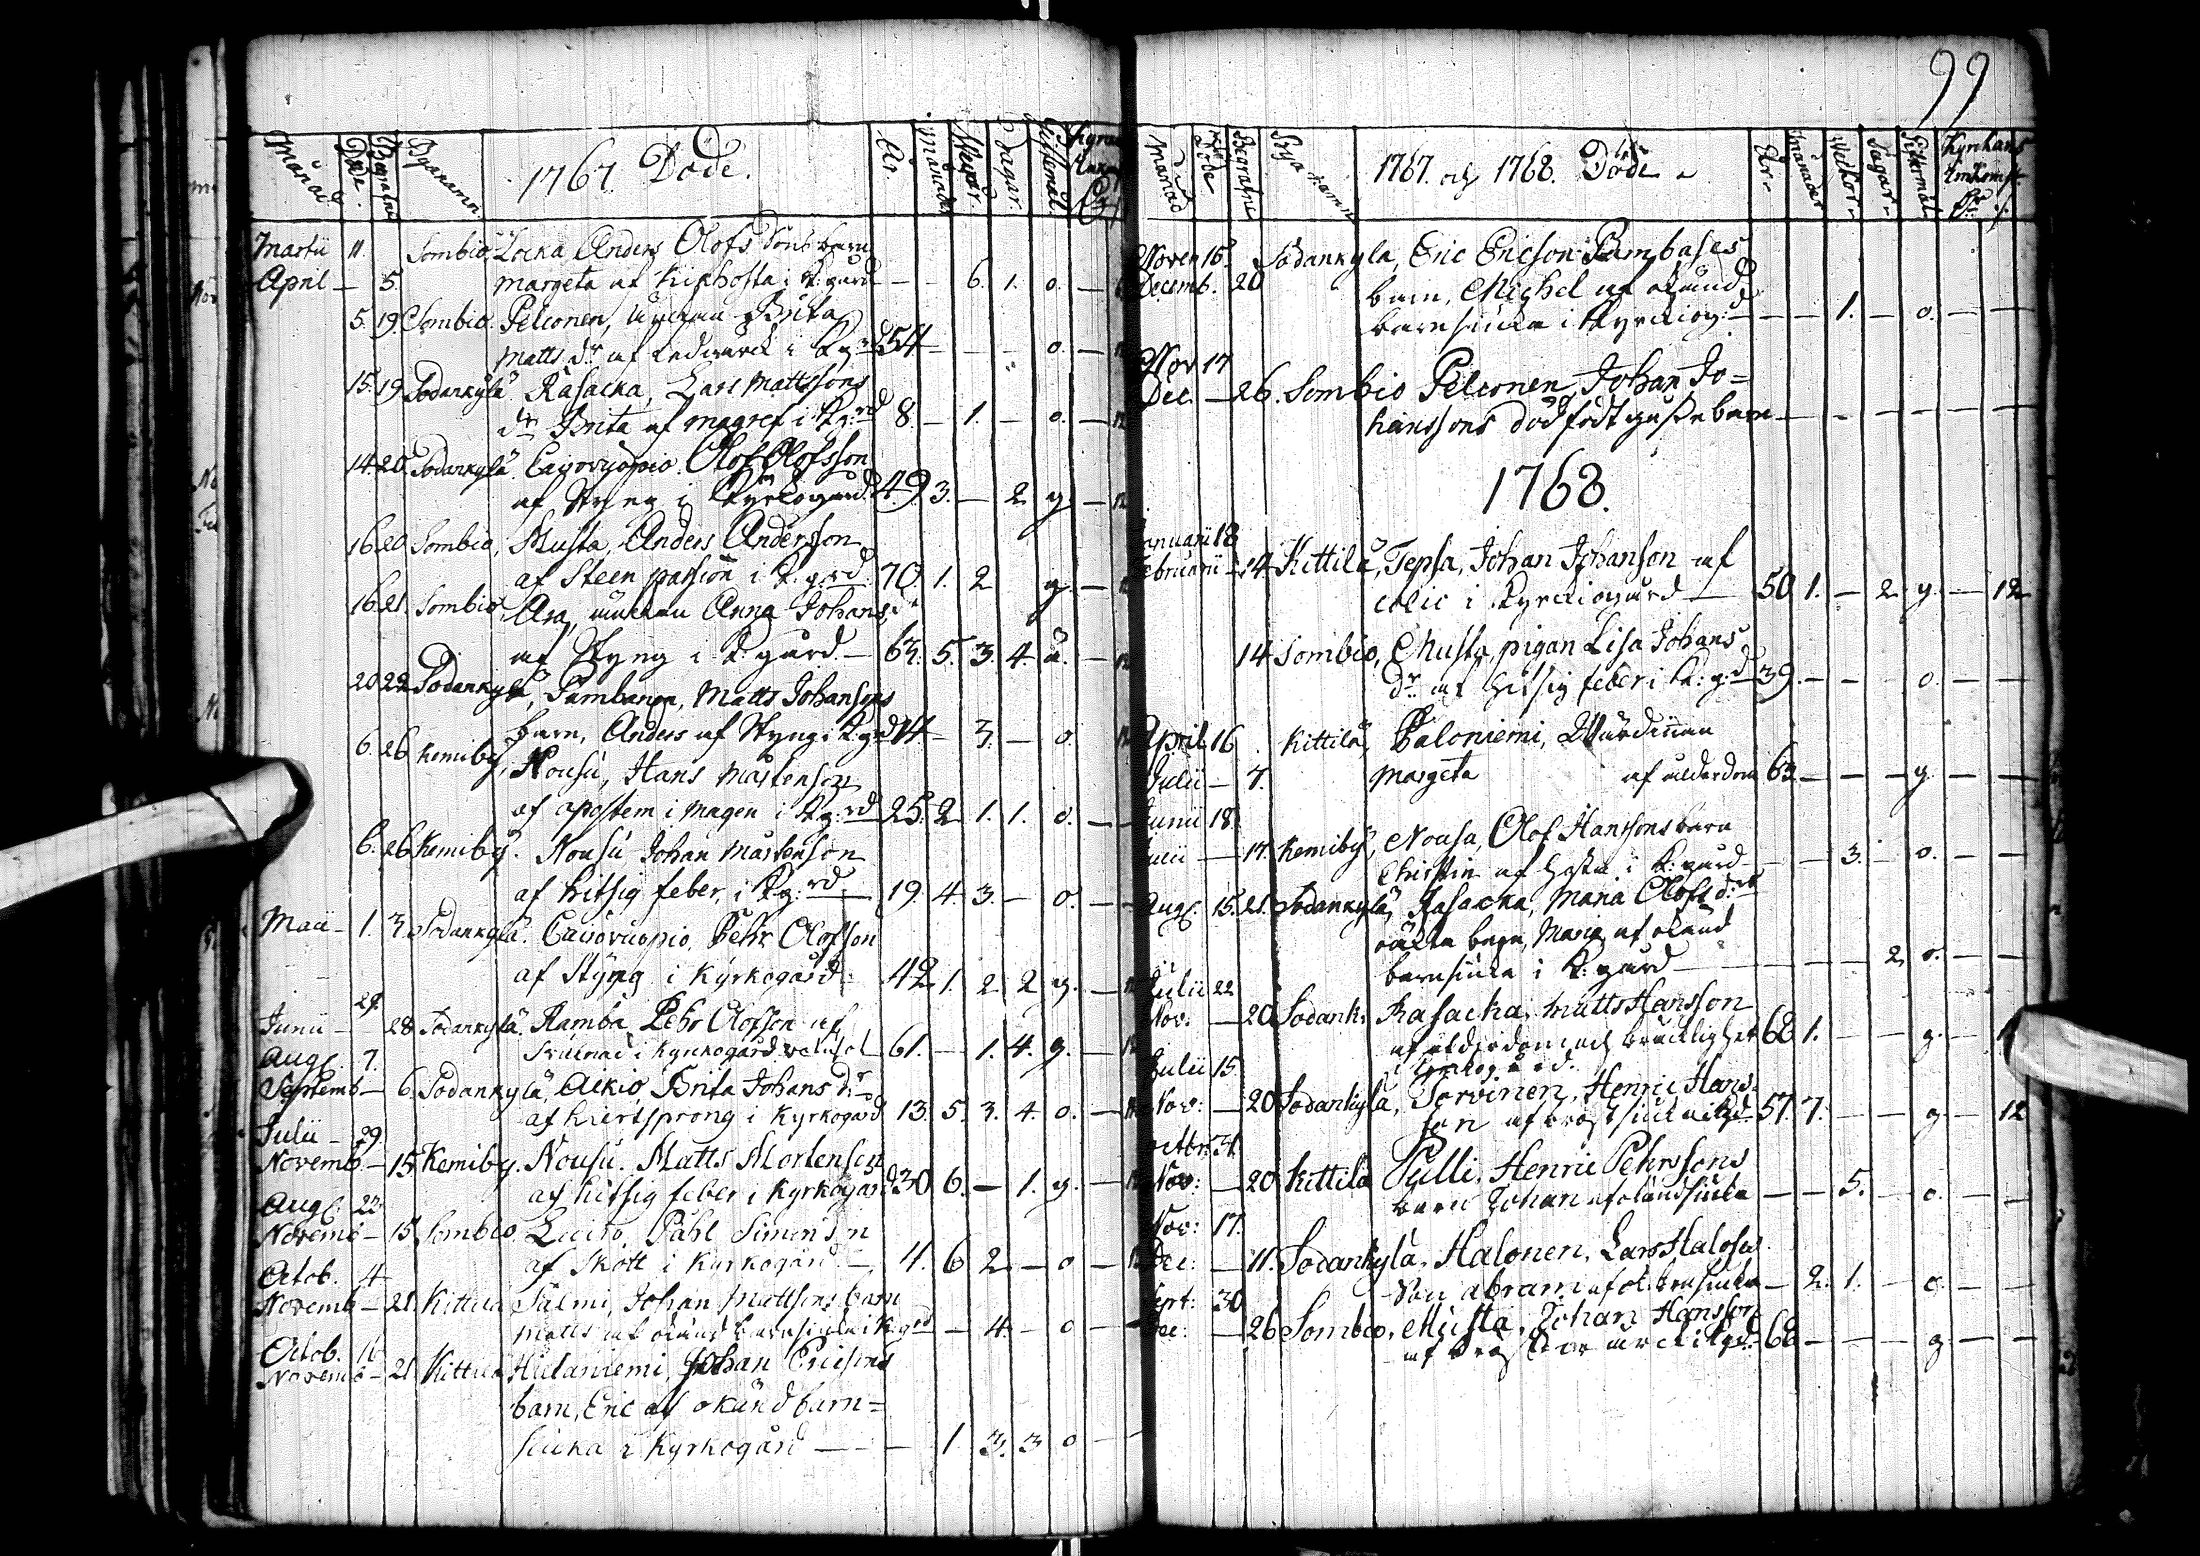 Månad Döde Begrafne Byanamn 1767 Döde. År månader Wekor. Dagar. Kyrk
Martii 11. Sombio, Locka Anders Olofs Sons barn
April — 5. Margeta af Kikhosta i K:gård — — 6. 1. o. —
5. 19. Sombio. Pelconen, Brita
Matts dr af i K:g 54 — — — o. —
15. 19. Sodankylä Rasacka, Lars Mattssons
dr Brita af magref i K:g:rd 8. — 1. — o. — 12
14. 20. Sodankylä Cairovuopio. Olof Olofsson
af Styng i Kyrkogård 49. 3. — 2 g. — 12
16. 20. Sombio, Musta, Anders Anderson
af Steen passion i K:gård 70. 1. 2 g. —
16. 21. Sombio Ara, Anna Johans dr
af Styng i K:gård — 63. 5. 3. 4. ä. — 12
20. 22. Sodankylä, Pambanen, Matts Johansons
barn, Anders af Styng i K:grd 14. — 3. — o. 12
6. 26 Kemiby, Nousu, Hans Mårtenson
af apostem i magen i K:g:rd 25. 2 1. 1. o. —
6. 26 Kemiby. Nousu Johan Mårtenson
af hitsig feber, i K:g:rd — 19. 4. 3. — o. —
Maii — 1. 3. Sodankylä. Cairovuopio, Pehr Olofson
af Styng i Kyrkogård. 42 1. 2. 2 g. — 12
29.
Junii — 28 Sodankylä. Ramba, Pehr Olofson af
i Kyrkogård 61. — 1. 4. g. — 12
Aug. 7.
Septemb — 6. Sodankylä, Aikio, Brita Johans dr
af hiertsprong i Kyrkogård 13. 5. 3. 4. o. —
Julii — 29.
Novemb. — 15. Kemiby. Nousu. Matts Mortenson
af hitsig feber i Kyrkogård 30 6. — 1. g. —
Aug. 22.
Novemb — 15. Sombio, Påhl Simonsn
af Skott i Kyrkogård — 4. 6 2 — o —
Octob. 4
Novemb — 21. Kittilä Salmi, Johan Mattsons barn
Matts af okänd barnsiuka i K:grd — — 4. — o —
Octob. 16
Novemb — 21 Kittilä Hietaniemi, Johan Ericsons
barn, Eric af okänd barn=
siuka i Kyrkogård — — — 1 3. 3 o —
99
Månad Döde Begrafne Bya namn 1767. och 1768. Döde År. Månader Wekor. Dagar. Kyrkans Inkomst
Noven 15. Sodankyla, Eric Ericson Pambases
Decemb. 20 barn, Michel af okänd
barnsiuka i Kyrckiog: — — 1. — o. — —
Nov 17
Dec. — 26. Sombio Pelconen, Johan Jo=
hanssons dödfödt barn — — — — — — —
1768.
Januarii 18
Februarii — 14. Kittilä, Tepsa, Johan Johanson af
colic i Kyrckiogård — 50 1. — 2. g. — 12
14 Sombio, Musta, pigan Lisa Johans
dr af hitsig feber i K:g:rd 39. — — — o. — —
April 16 Kittilä, Paloniemi, Wärdinnan
Julii — 7. Margeta af ålderdom 63 — — — g. — —
Junii 18.
Julii — 17. Kemiby, Nousu, Olof Hanssons barn
Christin af Hosta i K:gård — — 3. — o. — —
Aug. 15. 21. Sodankylä, Rasacka, Maria Olofs dr
oäkta barn, Maria, af okänd
barnsiuka i K:gård — — — — 2 o. — —
Julii 22
Nov. — 20 Sodank: Rasacka, Matts Hansson
af ålderdom och bräcklighet 68 1. — — g. —
i Kyrkogård.
Julii 15.
Nov: — 20 Sodankylä, Torvinen, Henric Hans=
son af bröstsiuka 57. 7. — — g — 12
octbr. 31.
Nov: — 20 Kittilä Pulli, Henric Pehrssons
barn Johan af okänd siuka — — 5. — o. — —
Nov: 17.
Dec: — 11. Sodankylä, Halonen, Lars
Son Abram af okänd siuka — 2. 1. — o. — —
Sept: 30
Dec: — 26 Sombio, Musta, Johan Hansson
af bröst i K:g: 68 — — — g — —